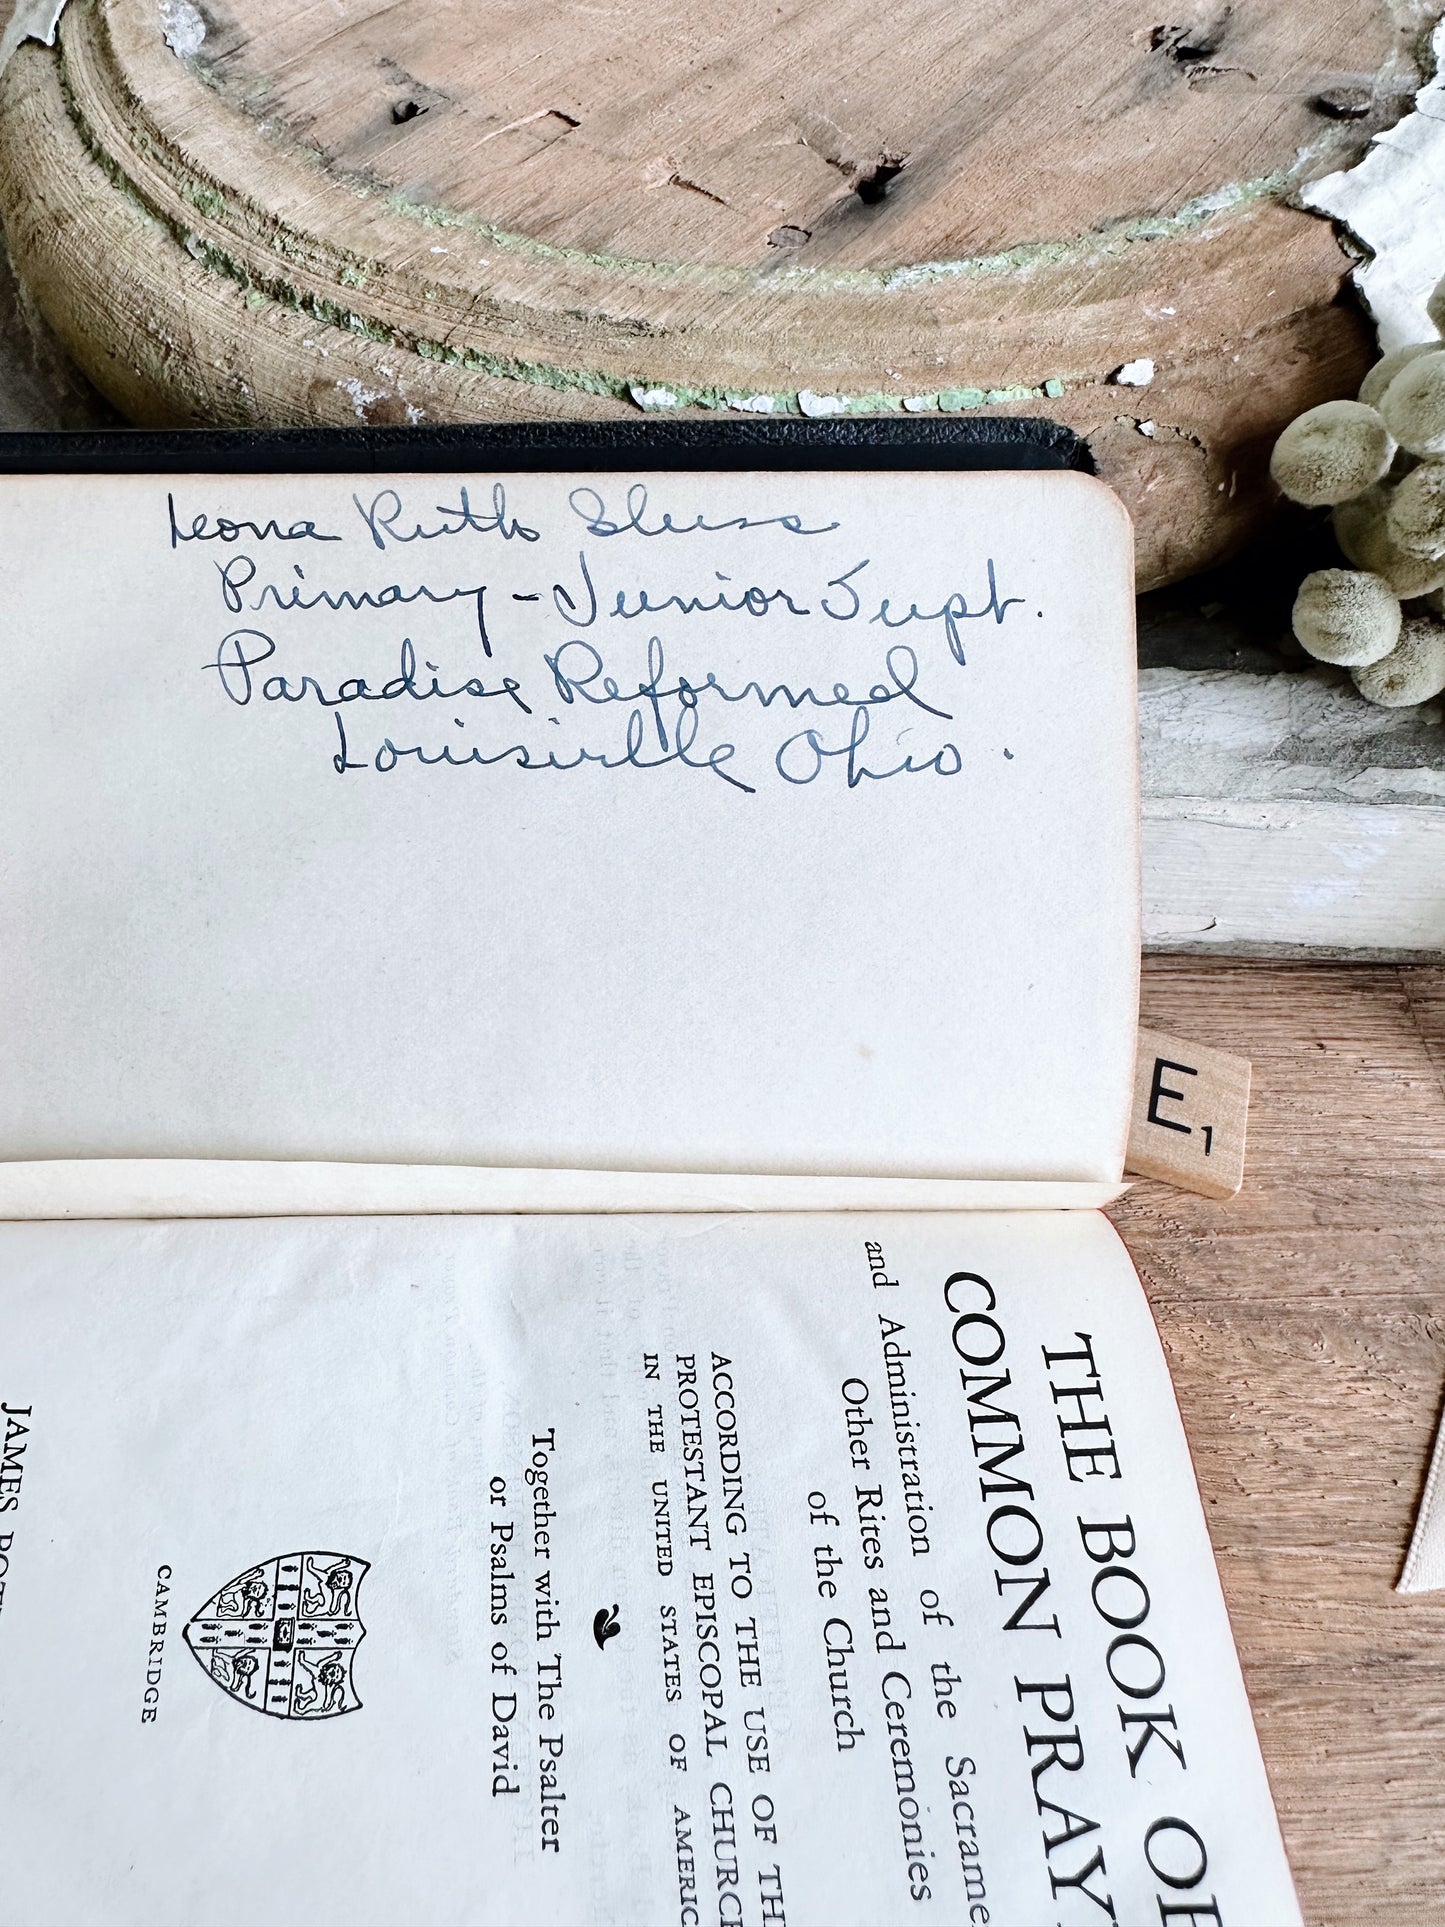 Leona Ruth Sluss
Primary - Junior Supt.
Paradise Reformed
Louisville Ohio.
E1
THE BOOK OF
COMMON PRAY
and Administration of the Sacrame
Other Rites and Ceremonies
of the Church
ACCORDING TO THE USE OF TH
PROTESTANT EPISCOPAL CHURC
IN THE UNITED STATES OF AMERIC
Together with The Psalter
or Psalms of David
CAMBRIDGE
JAMES POT